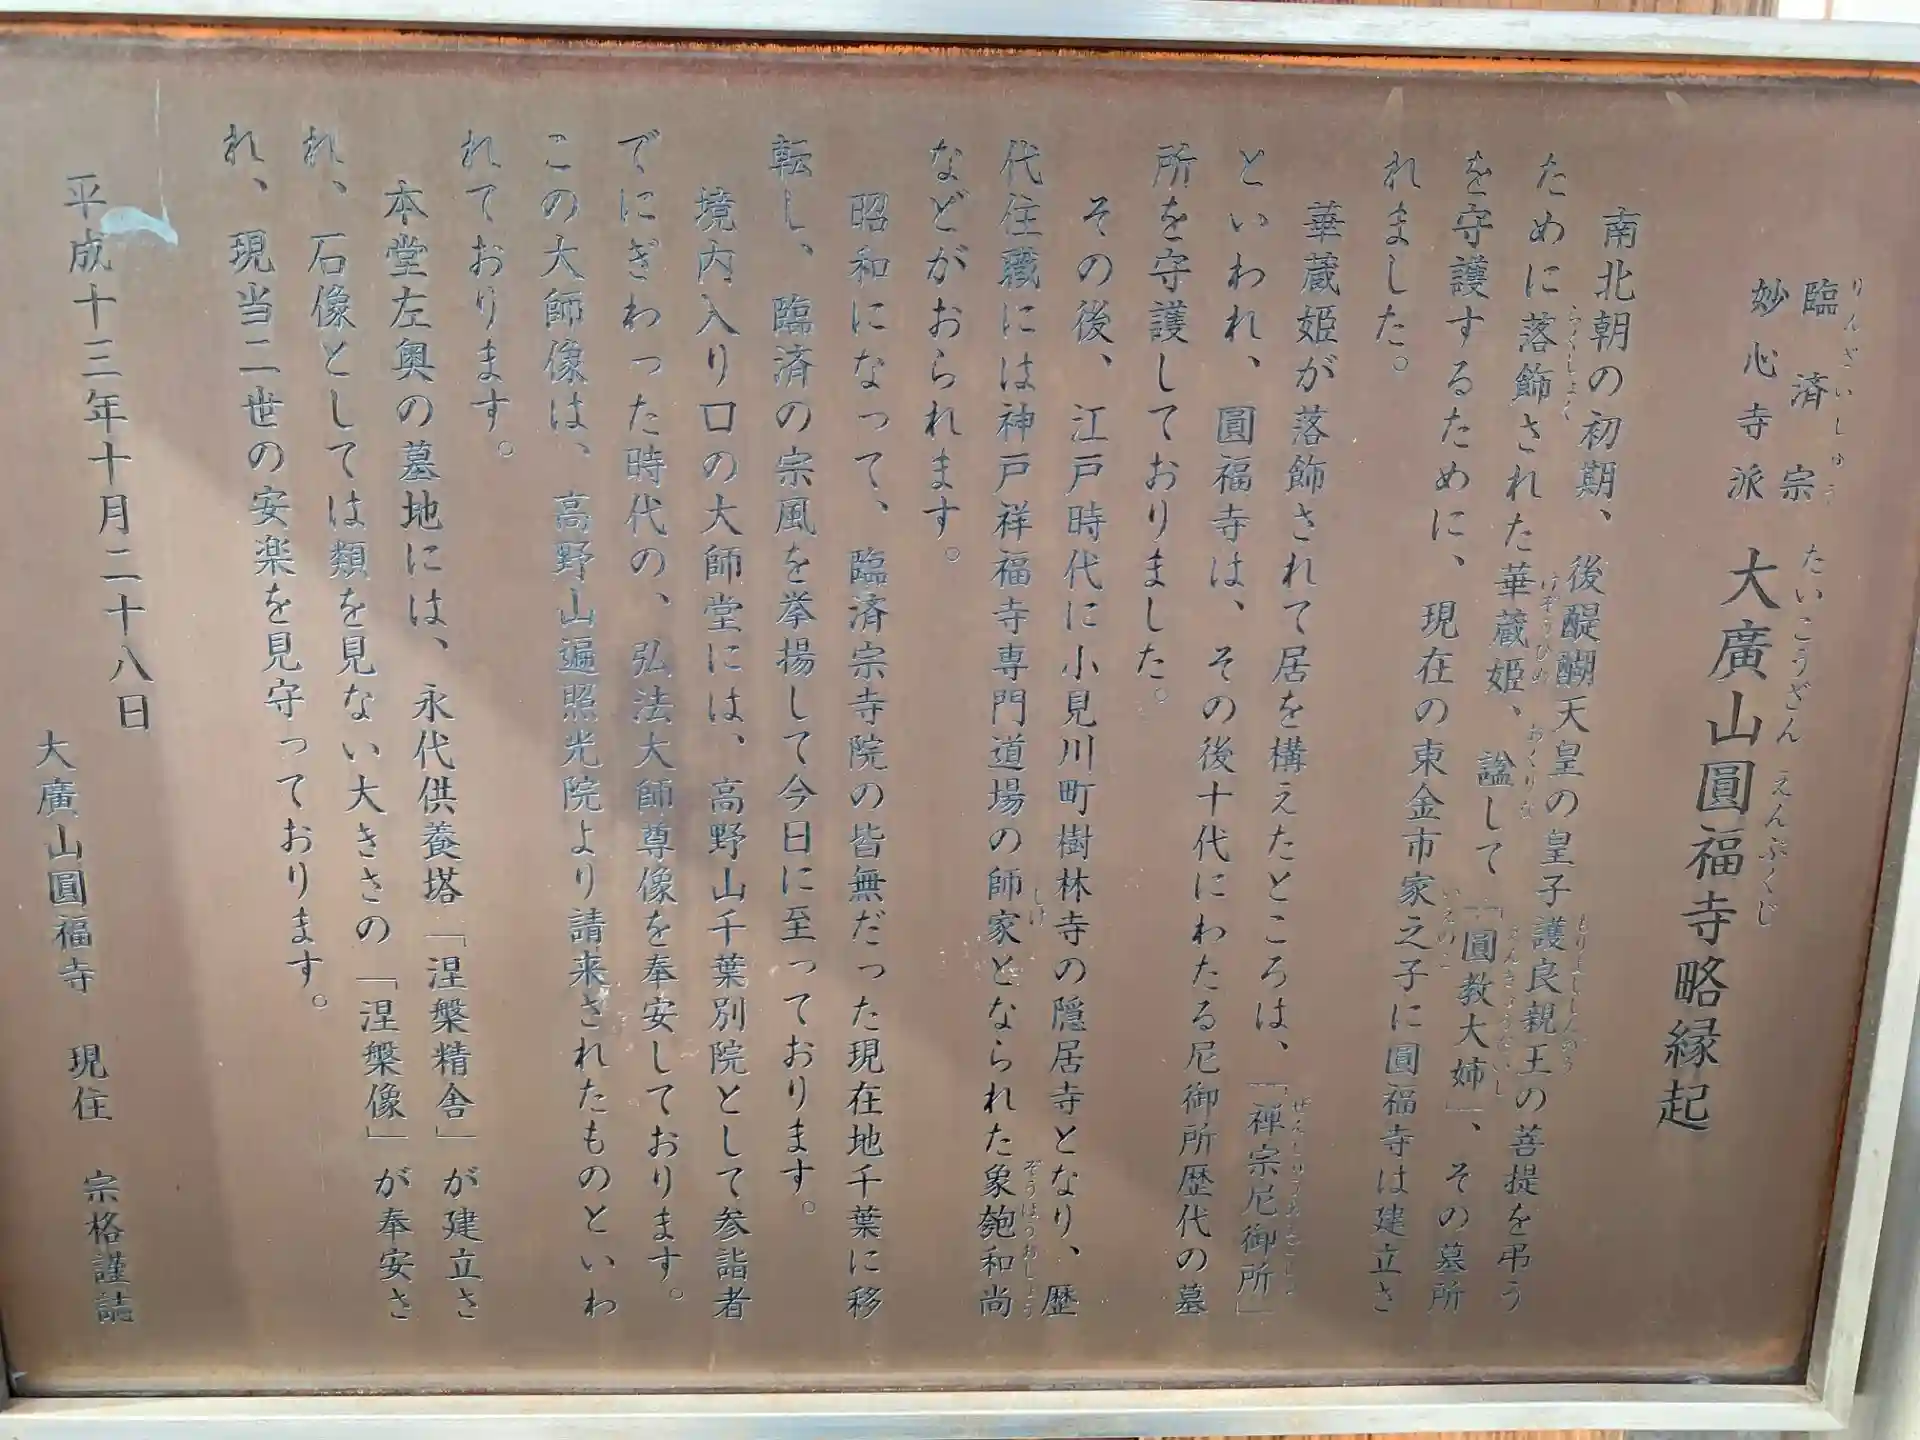 臨済宗
妙心寺派
大廣山圓福寺略縁起
りんざいしゅう
たいこうざん えんぷくじ
南北朝の初期、後醍醐天皇の皇子護良親王の菩提を弔う
もりよししんのう
ために落飾された華蔵姫、諡して「圓教大姉」、その墓所
らくしょく けぞうひめ おくりな えんきょうだいし
を守護するために、現在の東金市家之子に圓福寺は建立さ
いえのこ
れました。
華蔵姫が落飾されて居を構えたところは、「禅宗尼御所」
ぜんしゅうあまごしょ
といわれ、圓福寺は、その後十代にわたる尼御所歴代の墓
所を守護しておりました。
その後、江戸時代に小見川町樹林寺の隠居寺となり、歴
代住職には神戸祥福寺専門道場の師家となられた象匏和尚
しけ ぞうほうおしょう
などがおられます。
昭和になって、臨済宗寺院の皆無だった現在地千葉に移
転し、臨済の宗風を挙揚して今日に至っております。
境内入り口の大師堂には、高野山千葉別院として参詣者
でにぎわった時代の、弘法大師尊像を奉安しております。
この大師像は、高野山遍照光院より請来されたものといわ
れております。
本堂左奥の墓地には、永代供養塔「涅槃精舎」が建立さ
れ、石像としては類を見ない大きさの「涅槃像」が奉安さ
れ、現当二世の安楽を見守っております。
平成十三年十月二十八日
大廣山圓福寺 現住 宗格謹誌